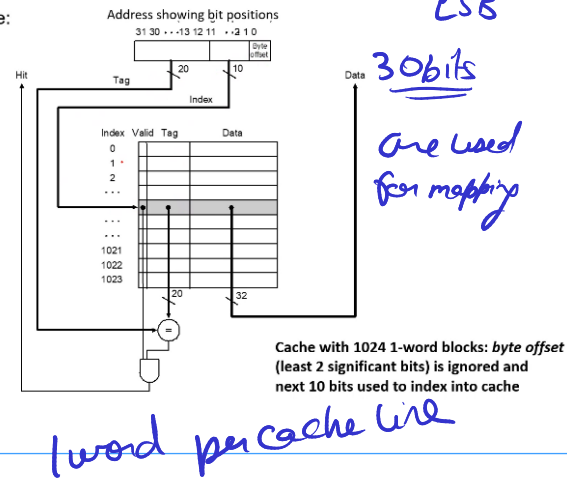 e:
Address showing bit positions
31 30 · · · 13 12 11 · · 2 1 0
Byte offset
20
10
Hit
Tag
Index
Data
LSB
30bits
are used
for mapping
Index Valid Tag Data
0
1
2
· · ·
· · ·
· · ·
1021
1022
1023
20
32
=
Cache with 1024 1-word blocks: byte offset
(least 2 significant bits) is ignored and
next 10 bits used to index into cache
1 word per cache line